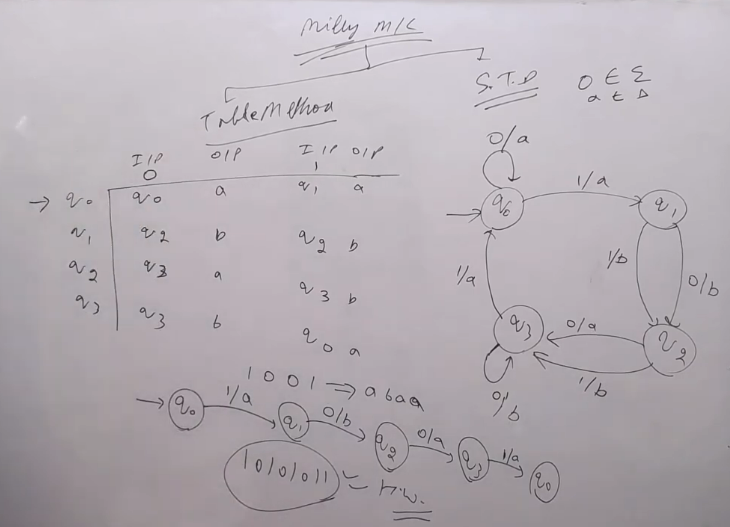 Milly M/C
Table Method
S.T.D 0 ∈ Σ
a ∈ Δ
I/P O/P I/P O/P
0 1
→ q0 q0 a q1 a
q1 q2 b q2 b
q2 q3 a q3 b
q3 q3 b q0 a
0/a
q0
1/a
q1
1/b
0/b
1/a
q3
0/a
q2
1/b
0/b
1 0 0 1 ⇒ abaa
→ q0 1/a q1 0/b q2 0/a q3 1/a q0
10101011 = H.W.